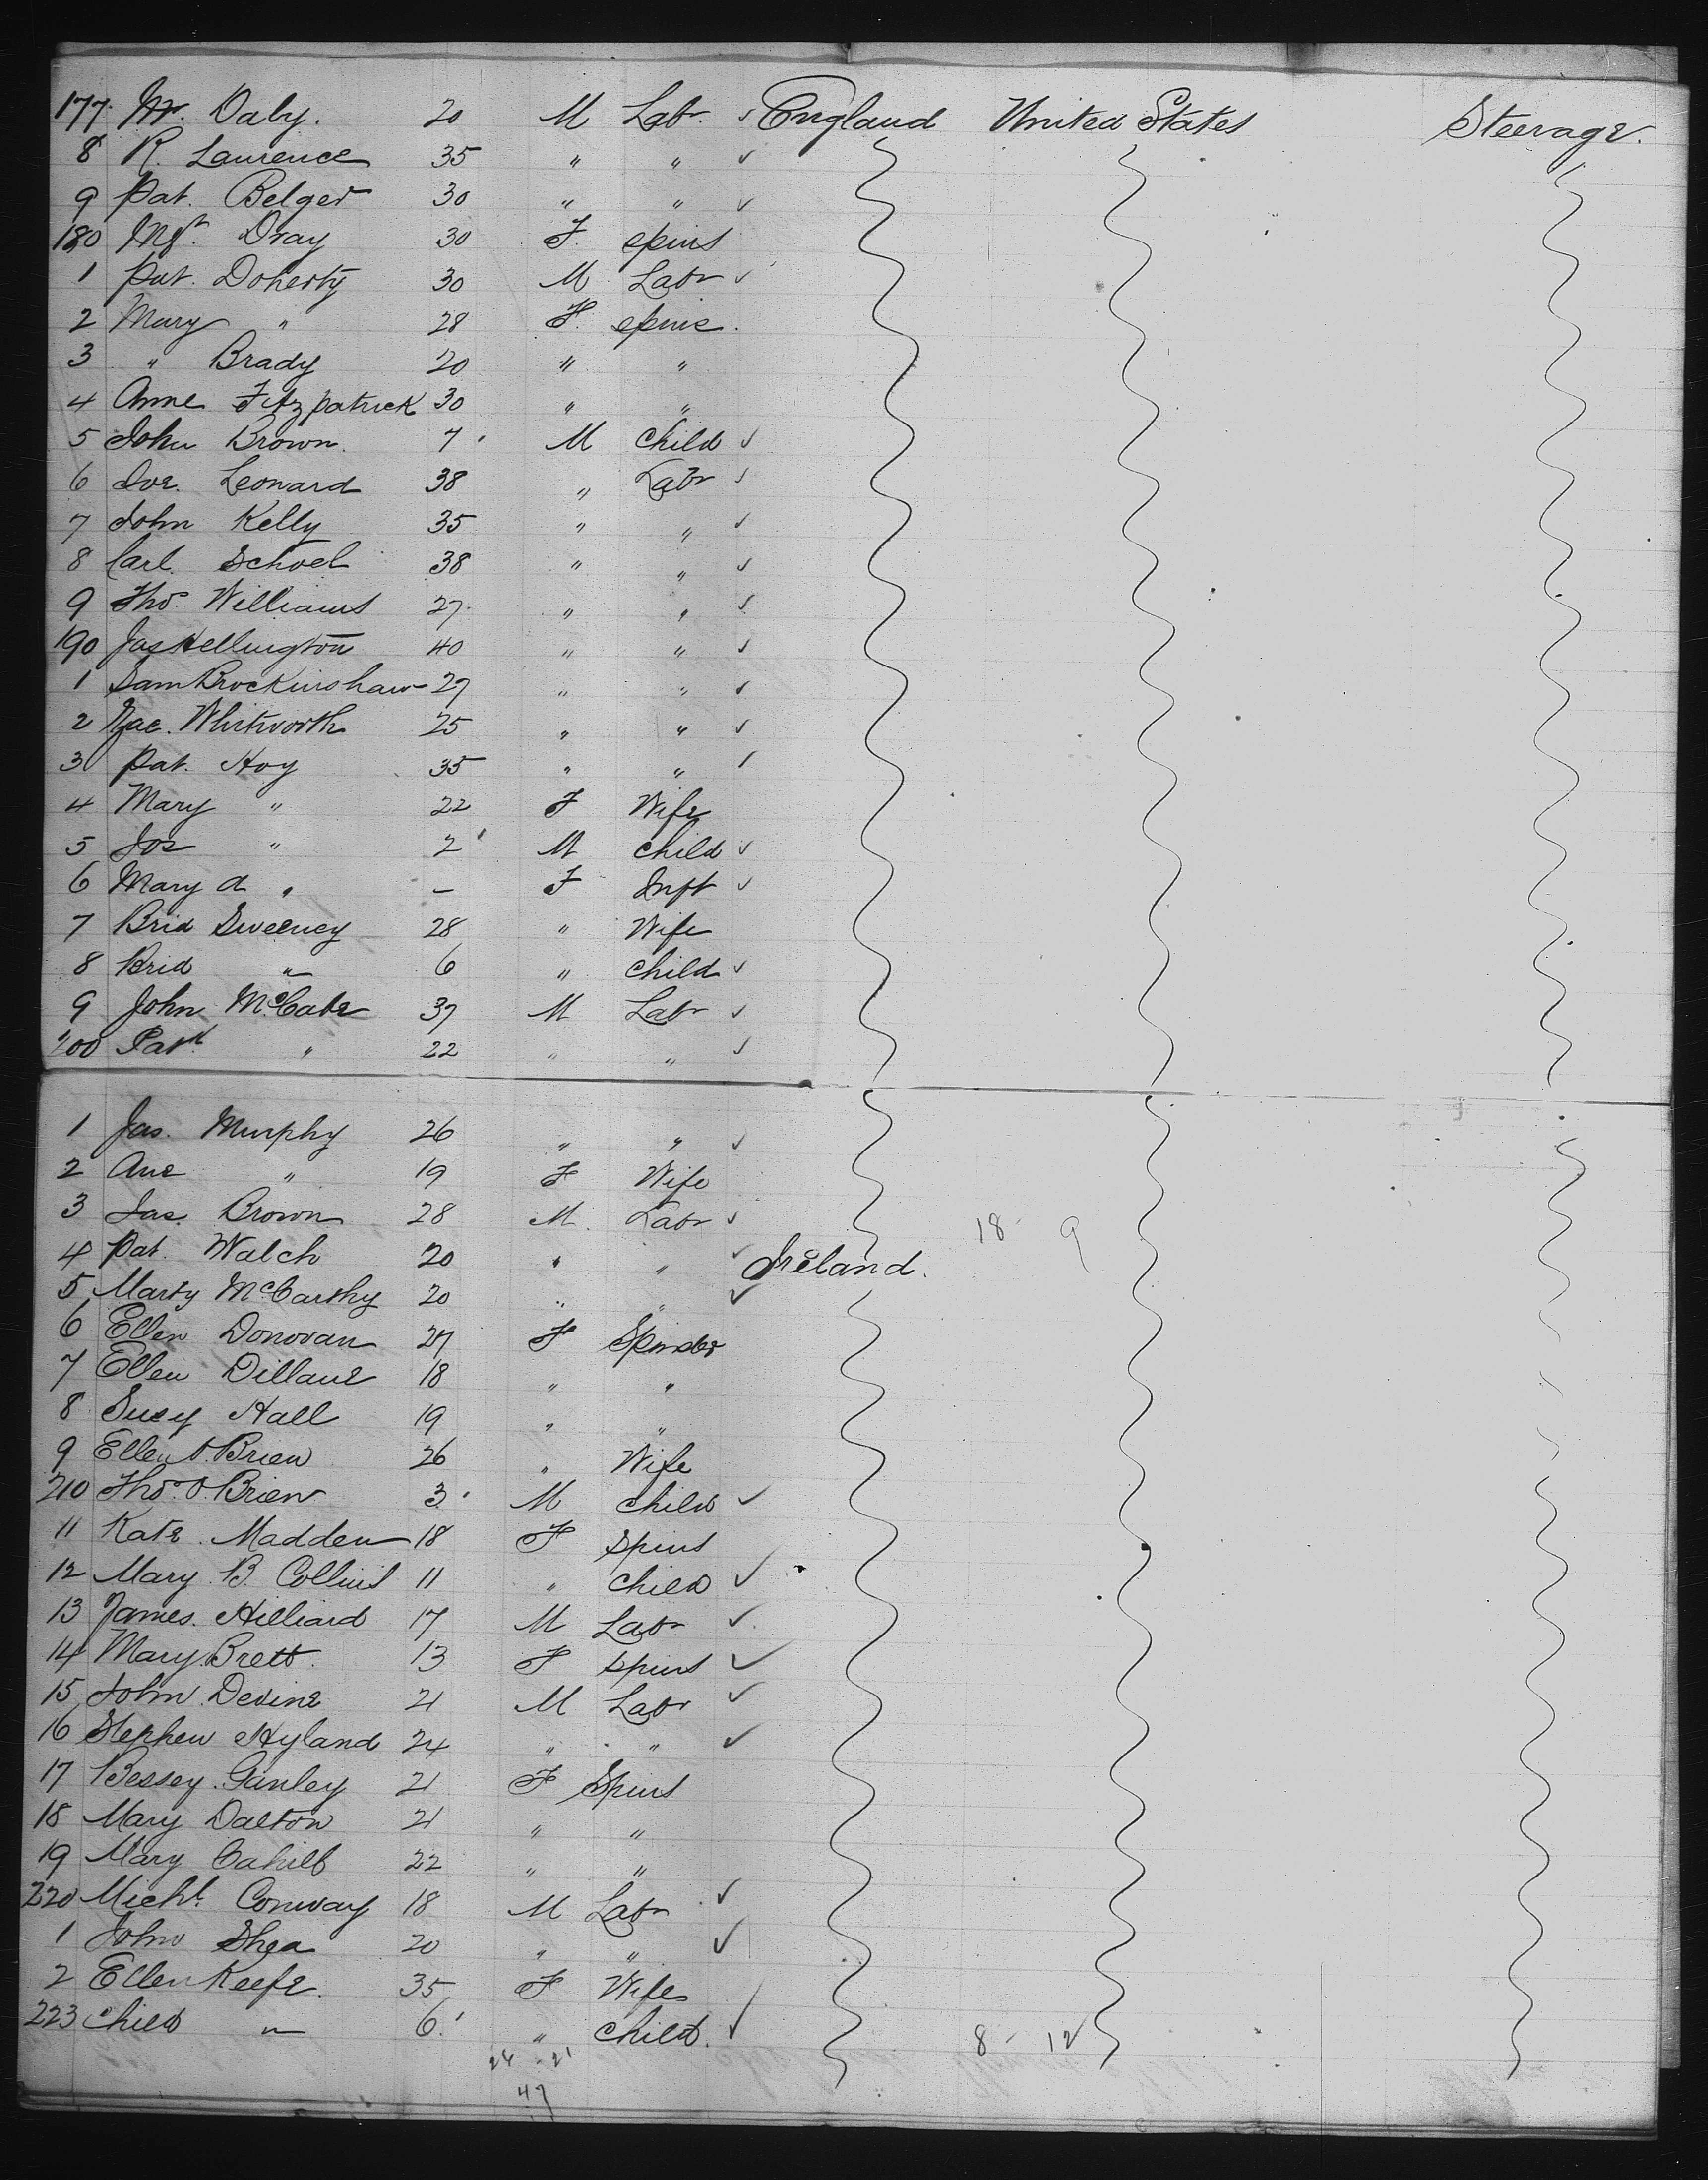 177. Mr. Daly. 20 M Labr. ✓ England United States Steerage.
8 R. Laurence 35 " " ✓
9 Pat. Belger 30 " " ✓
180 Mgt. Dray 30 F. spins
1 Pat. Doherty 30 M Labr ✓
2 Mary " 28 F. spins.
3 " Brady 20 " "
4 Anne Fitzpatrick 30 " "
5 John Brown. 7 M Child ✓
6 Jos. Leonard 38 " Labr ✓
7 John Kelly 35 " " ✓
8 Carl. Schoel 38 " " ✓
9 Thos. Williams 27. " " ✓
190 Jas Hellington 40 " " ✓
1 Sam Brockinshaw 27 " " ✓
2 Whitworth 25 " " ✓
3 Pat. Hoy 35 " " ✓
4 Mary " 22 F Wife
5 Jos " 2 M child ✓
6 Mary A " – F Inft ✓
7 Brid Sweeney 28 " Wife
8 Brid " 6 " child ✓
9 John McCabe 37 M Labr ✓
200 Patk " 22 " " ✓
1 Jas. Murphy 26 " " ✓
2 Ane " 19 F Wife
3 Jas. Brown 28 M. Labr ✓ 18 9
4 Pat. Walch 20 " " ✓ Ireland.
5 Marty McCarthy 20 " " ✓
6 Ellen Donovan 27 F Spinster
7 Ellen Dillane 18 " "
8 Susy Hall 19 " "
9 Ellen O.Brien 26 " Wife
210 Thos. O.Brien 3 M child ✓
11 Kate. Madden 18 F spins
12 Mary. B. Collins 11 " child ✓
13 James. Hilliard 17 M Labr ✓
14 Mary Brett. 13 F spins ✓
15 John. Devine 21 M Labr ✓
16 Stephen Hyland 24 " " ✓
17 Bessey. Ganley 21 F Spins
18 Mary Dalton 21 " "
19 Mary Cahill 22 " "
220 Michl. Conway 18 M Labr ✓
1 John Shea 20 " " ✓
2 Ellen Keefe. 35 F Wife
223 Child " 6. " child. ✓ 8 - 12
24 - 21
47